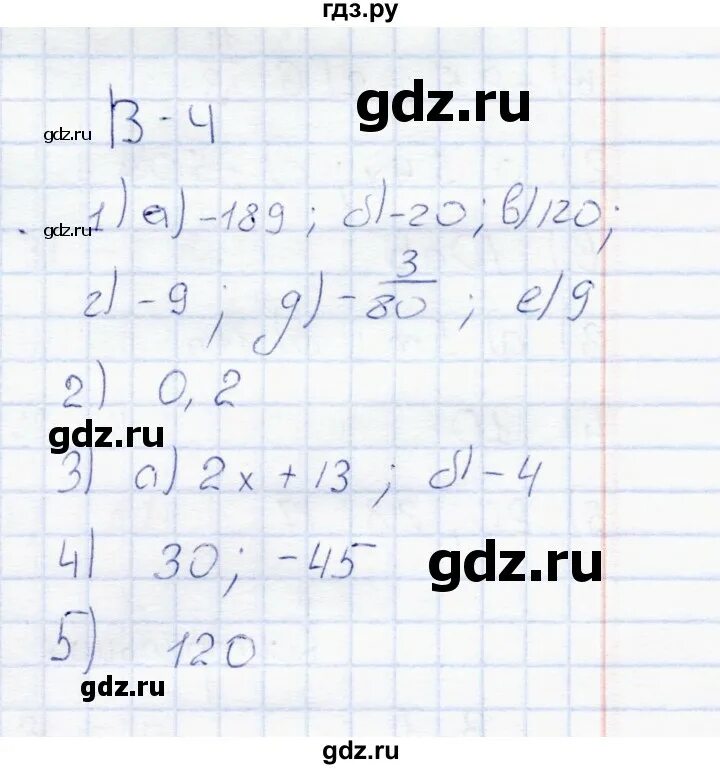 гдз.ру
gdz.ru
gdz.ru В-4
gdz.ru 1) а) -189; б) -20; в) 120;
г) -9; д) -3/80; е) 9
2) 0,2
gdz.ru
3) а) 2x + 13; б) -4
4) 30; -45
gdz.ru
5) 120
gdz.ru
gdz.ru